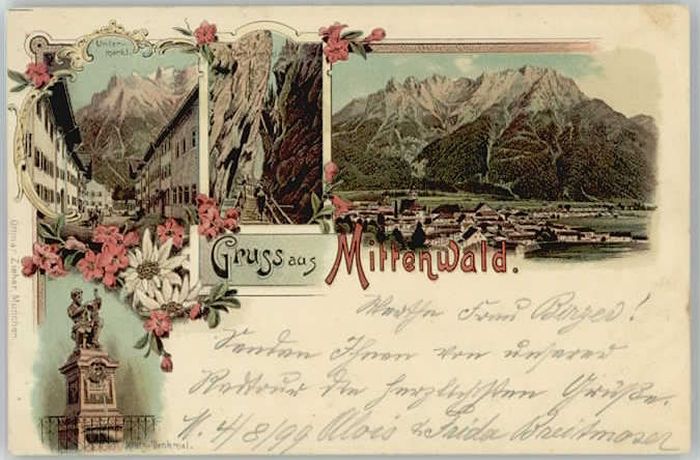 Unter-
markt.
Gruss aus Mittenwald.
Ottmar Zieher, München.
Werthe Frau Berger!
Senden Ihnen von unserer
Radtour die herzlichsten Grüße.
M. 4/8/99 Alois & Frida Breitmoser
-Denkmal.